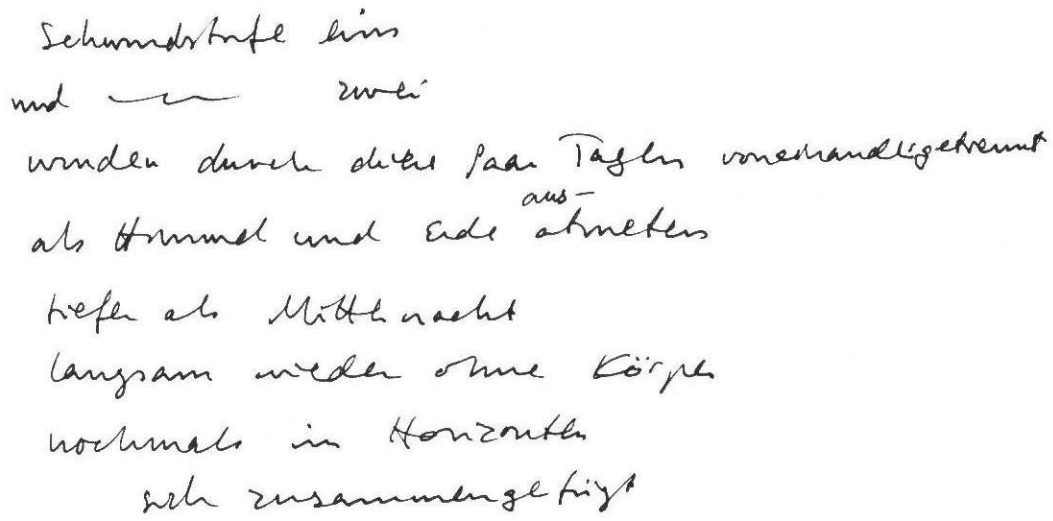 Schwundstufe eins
und — zwei
wurden durch diese paar Tage voneinander getrennt
als Himmel und Erde aus-
atmeten
tiefer als Mitternacht
langsam wieder ohne Körper
nochmals in Horizonten
sich zusammengefügt